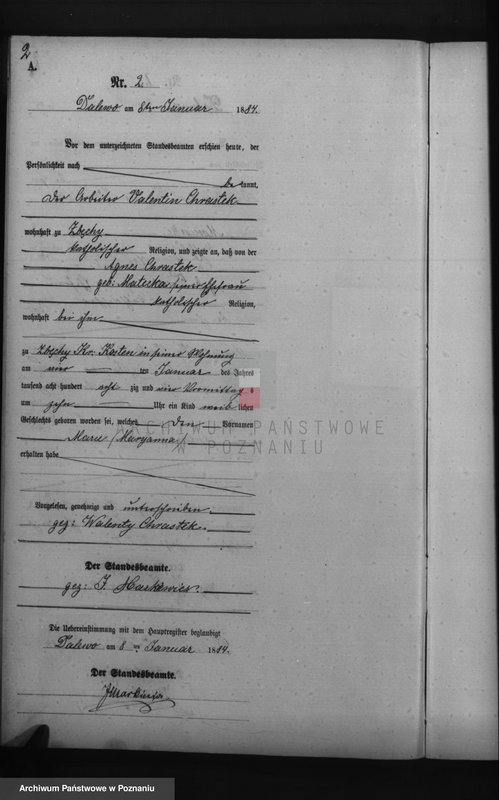 2
A.
Nr. 2
Dalewo am 8ten Januar 1884.
Vor dem unterzeichneten Standesbeamten erschien heute, der
Persönlichkeit nach
be kannt,
der Arbeiter Valentin Chrastek
wohnhaft zu Zbęchy
katholischer Religion, und zeigte an, daß von der
Agnes Chrastek
geb: Matecka seiner Ehefrau
katholischer Religion,
wohnhaft bei ihm
zu Zbęchy Kr. Kosten in seiner Wohnung
am vier ten Januar des Jahres
tausend acht hundert acht zig und vier Vormittag s
um zehn Uhr ein Kind weib lichen
Geschlechts geboren worden sei, welches den Vornamen
Marie /Maryanna/
erhalten habe
Vorgelesen, genehmigt und unterschrieben
gez: Walenty Chrastek.
Der Standesbeamte.
gez: J. Markiewicz.
Die Uebereinstimmung mit dem Hauptregister beglaubigt
Dalewo am 8 ten Januar 1884.
Der Standesbeamte.
ARCHIWUM PAŃSTWOWE
W POZNANIU
Archiwum Państwowe w Poznaniu